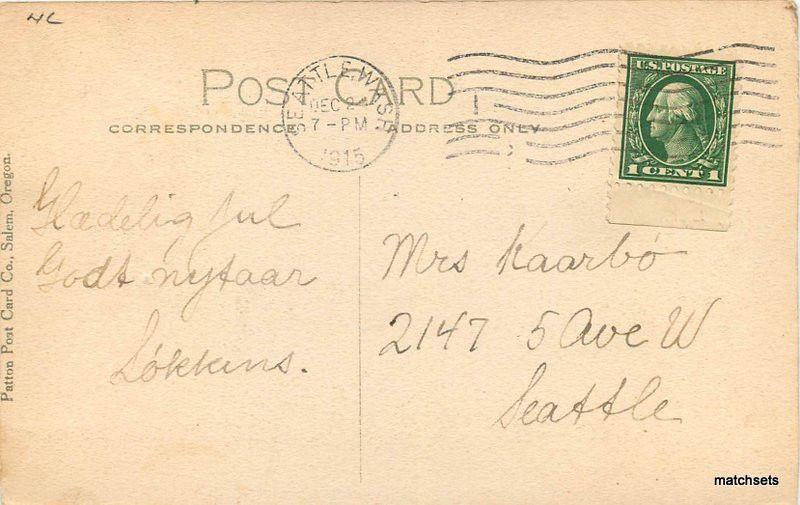 4c
POST CARD
CORRESPONDENCE
ADDRESS ONLY
SEATTLE, WASH.
DEC 2
7-PM
1915
U.S. POSTAGE
1 CENT 1
Glædelig Jul
Godt nytaar
Løkkins.
Mrs Kaarbø
2147 5 Ave W
Seattle
Patton Post Card Co., Salem, Oregon.
matchsets